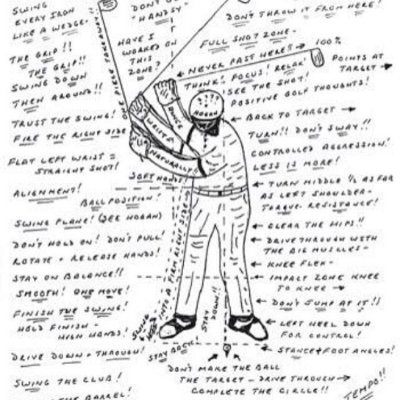 SWING
EVERY IRON
LIKE A WEDGE!
THE GRIP!!
THE GRIP!!
SWING DOWN
THEN AROUND!!
TRUST THE SWING!
FIRE THE RIGHT SIDE
FLAT LEFT WRIST =
STRAIGHT SHOT!
ALIGNMENT!
BALL POSITION!
SWING PLANE! (SEE HOGAN)
DON'T HOLD ON! DON'T PULL!
ROTATE + RELEASE HANDS!
STAY ON BALANCE!!
SMOOTH! ONE MOVE!
FINISH THE SWING!
HOLD FINISH -
HIGH HANDS!
DRIVE DOWN + THROUGH!
SWING THE CLUB!
THE BARREL!
"HANDSY"
ONE PIECE TAKEAWAY!
HAVE I
WORKED ON
THIS ZONE?
DON'T THROW IT FROM HERE!
FULL SHOT ZONE-
100%
NEVER PAST HERE!!
POINTS AT
TARGET
THINK! FOCUS! RELAX!
SEE THE SHOT!
POSITIVE GOLF THOUGHTS!
HOGAN
WRISTS
NATURALLY!
SOFT HANDS!
BACK TO TARGET
TURN!! DON'T SWAY!!
CONTROLLED AGGRESSION!
LESS IS MORE!
TURN MIDDLE 1/2 AS FAR
AS LEFT SHOULDER-
TORQUE. RESISTANCE!
CLEAR THE HIPS!!
DRIVE THROUGH WITH
THE BIG MUSCLES-
KNEE FLEX-
IMPACT ZONE KNEE
TO KNEE
DON'T JUMP AT IT!!
LEFT HEEL DOWN
FOR CONTROL!
STANCE + FOOT ANGLES!
SWING INTO A FIRM RIGHT SIDE!
STAY DOWN!!
STAY BACK!
DON'T MAKE THE BALL
THE TARGET - DRIVE THROUGH
COMPLETE THE CIRCLE!!
TEMPO!!